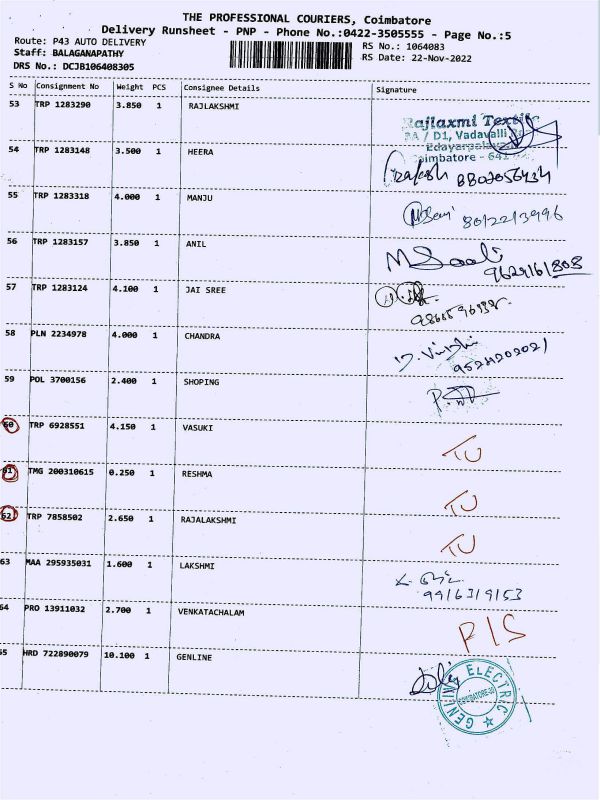 THE PROFESSIONAL COURIERS, Coimbatore
Delivery Runsheet - PNP - Phone No.:0422-3505555 - Page No.:5
Route: P43 AUTO DELIVERY
RS No.: 1064083
Staff: BALAGANAPATHY
RS Date: 22-Nov-2022
DRS No.: DCJB106408305
S No Consignment No Weight PCS Consignee Details Signature
53 TRP 1283290 3.850 1 RAJLAKSHMI
Rajlaxmi Textile
/ D1, Vadavalli
Edayarpalayam
Coimbatore - 641
54 TRP 1283148 3.500 1 HEERA
55 TRP 1283318 4.000 1 MANJU
8012213996
56 TRP 1283157 3.850 1 ANIL
9629161808
57 TRP 1283124 4.100 1 JAI SREE
58 PLN 2234978 4.000 1 CHANDRA
59 POL 3700156 2.400 1 SHOPING
60 TRP 6928551 4.150 1 VASUKI
TU
61 TMG 200310615 0.250 1 RESHMA
TU
62 TRP 7858502 2.650 1 RAJALAKSHMI
TU
63 MAA 295935031 1.600 1 LAKSHMI
9916319153
64 PRO 13911032 2.700 1 VENKATACHALAM
P/S
65 HRD 722890079 10.100 1 GENLINE
GENLINE ELECTRIC
COIMBATORE